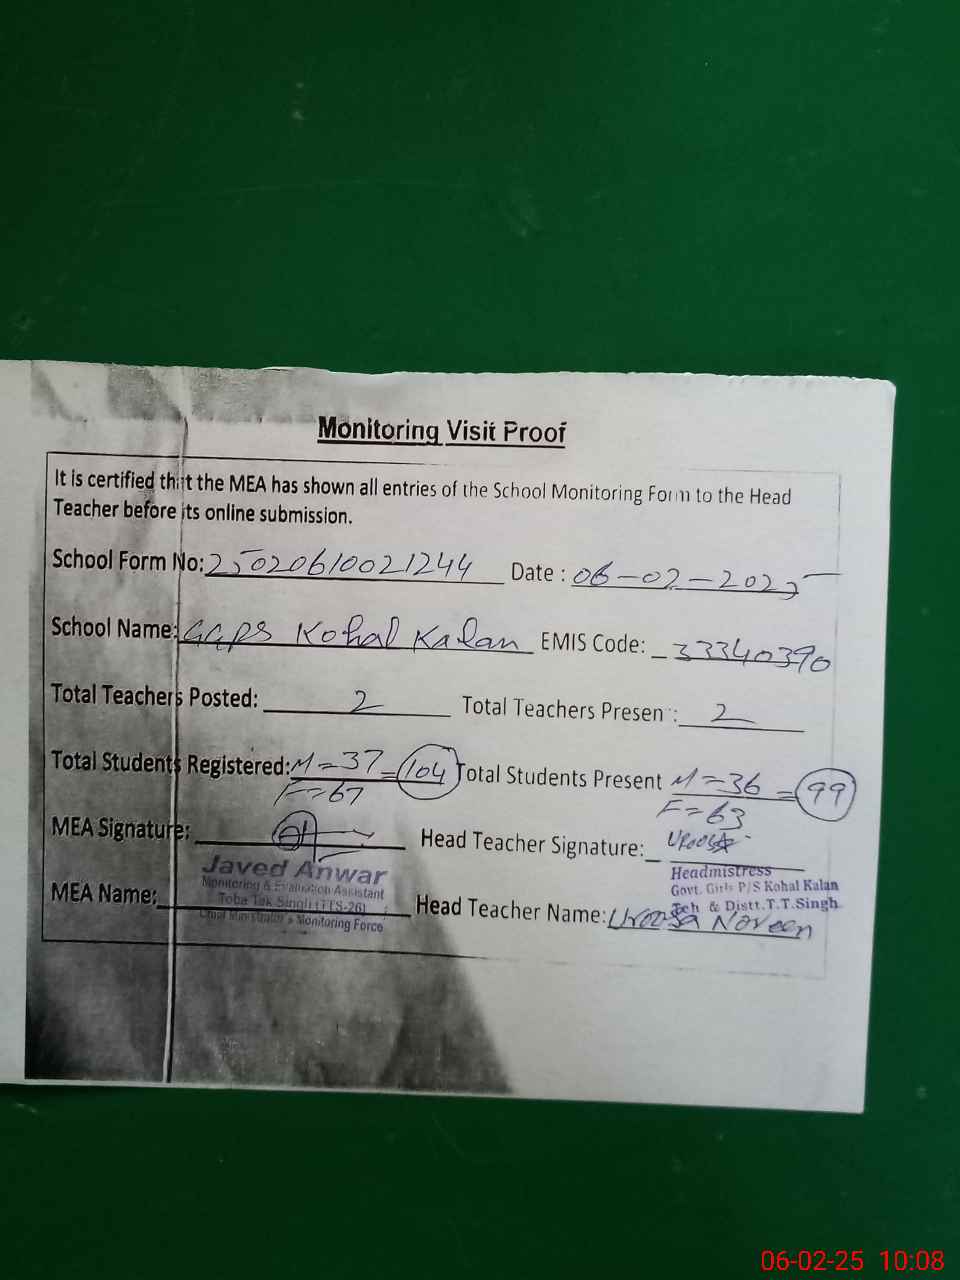 Monitoring Visit Proof
It is certified that the MEA has shown all entries of the School Monitoring Form to the Head
Teacher before its online submission.
School Form No: 25020610021244 Date : 06-02-2025
School Name: GGPS Kohal Kalan EMIS Code: 33340390
Total Teachers Posted: 2 Total Teachers Present: 2
Total Students Registered: M=37 = 104 Total Students Present M=36 = 99
F=67 F=63
MEA Signature: Head Teacher Signature: Uroosa
Javed Anwar
Monitoring & Evaluation Assistant
Toba Tek Singh (TTS-26)
Chief Minister's Monitoring Force
Headmistress
Govt. Girls P/S Kohal Kalan
Teh & Distt.T.T.Singh
MEA Name: Head Teacher Name: Uroosa Noreen
06-02-25 10:08